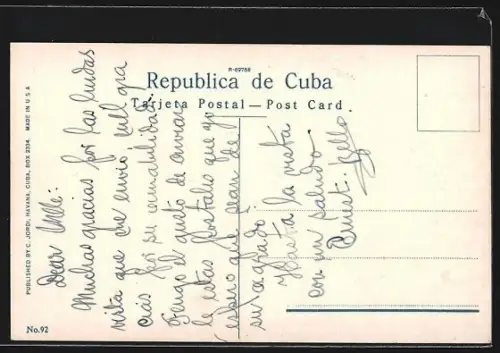 R-69756
Republica de Cuba
Tarjeta Postal — Post Card.
PUBLISHED BY C. JORDI, HAVANA, CUBA, BOX 2314. MADE IN U.S.A
No. 92
Dear
Muchas gracias por las lindas
vista que me envio mill gra
cias por su amabilidad.
Tengo el gusto de enviar
le estas postales que yo
espero que sean de
su agrado.
Hasta la vista
con un saludo